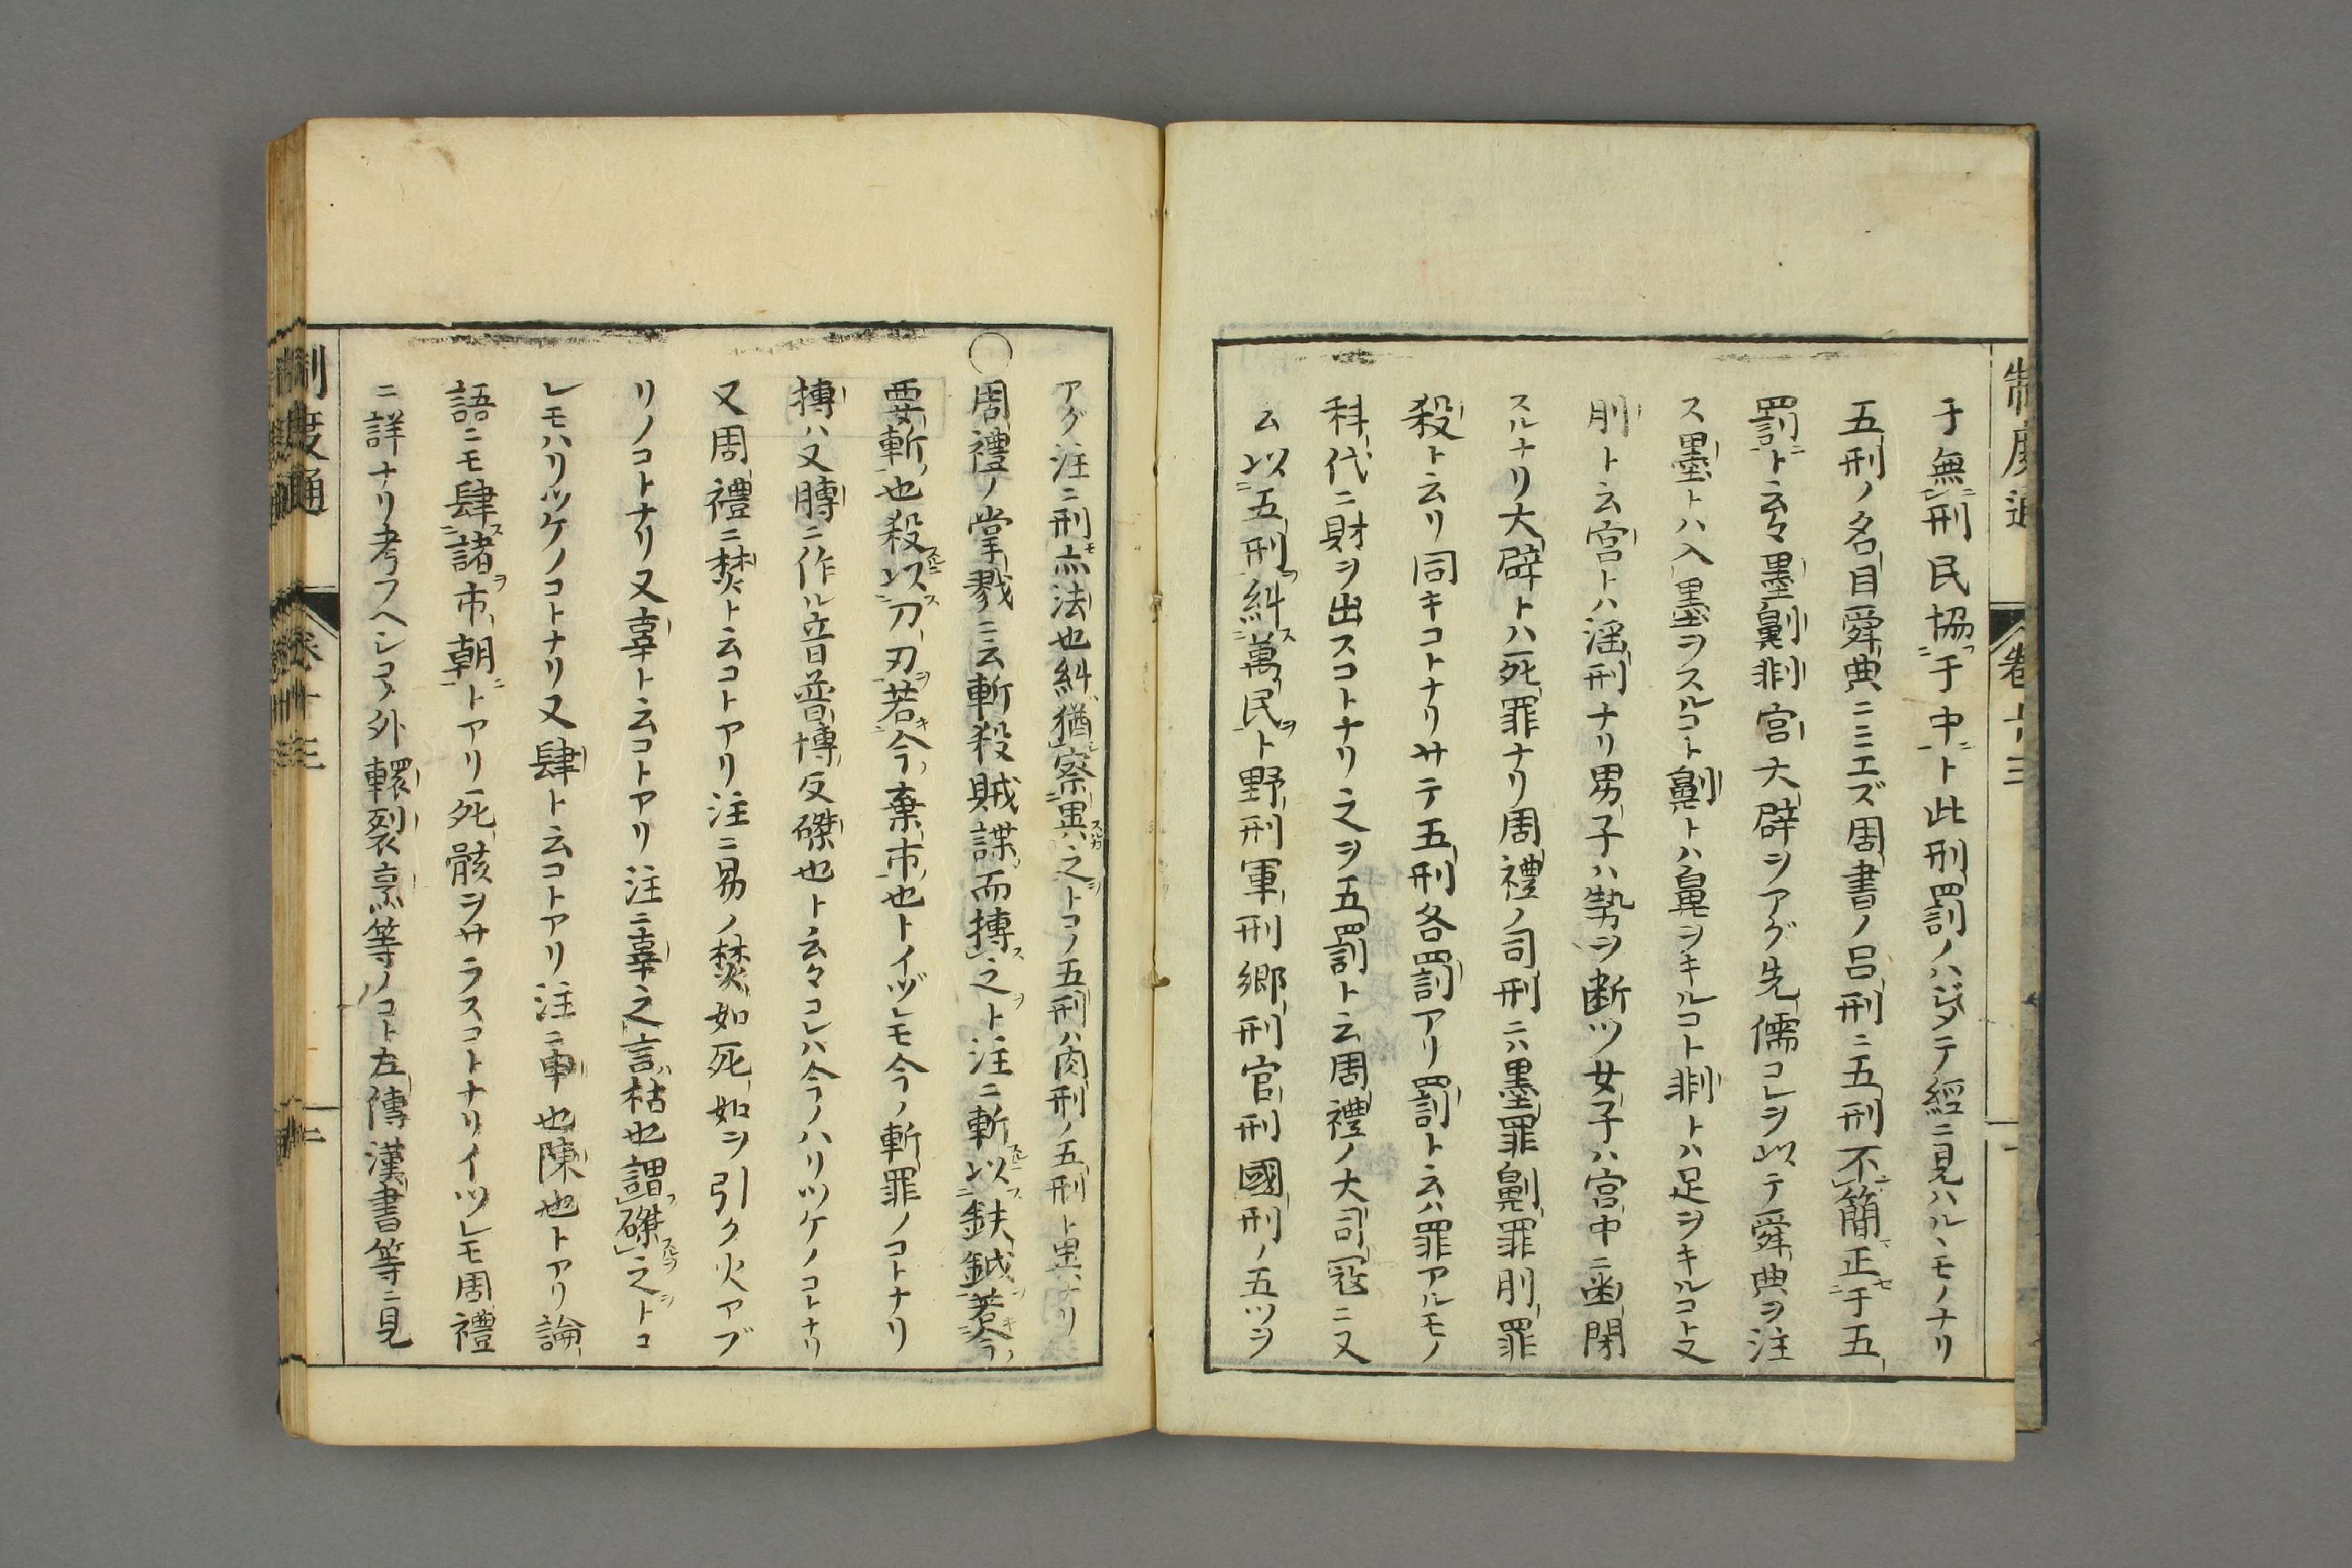 制度通 卷十三 一
于無刑民協于中ト此刑罰ノハジメテ經ニ見ハルヽモノナリ
五刑ノ名目舜典ニミエズ周書ノ呂刑ニ五刑不簡正于五
罰ト云々墨劓剕宮大辟ヲアグ先儒コレヲ以テ舜典ヲ注
ス墨トハ入墨ヲスルコト劓トハ鼻ヲキルコト剕トハ足ヲキルコト又
刖ト云宮トハ淫刑ナリ男子ハ勢ヲ断ツ女子ハ宮中ニ幽閉
スルナリ大辟トハ死罪ナリ周禮ノ司刑ニハ墨罪劓罪刖罪
殺ト云リ同キコトナリサテ五刑各罰アリ罰ト云ハ罪アルモノ
科代ニ財ヲ出スコトナリ之ヲ五罰ト云周禮ノ大司寇ニ又
云以五刑糾萬民ト野刑軍刑郷刑官刑國刑ノ五ツヲ
アグ注ニ刑亦法也糾猶察異之トコノ五刑ハ肉刑ノ五刑ト異ナリ
○周禮ノ掌戮ニ云斬殺賊諜而搏之ト注ニ斬以鈇鉞若今
要斬也殺以刀刃若今棄市也トイヅレモ今ノ斬罪ノコトナリ
搏ハ又膊ニ作ル音普博反磔也ト云々コレハ今ノハリツケノコトナリ
又周禮ニ焚ト云コトアリ注ニ易ノ焚如死如ヲ引ク火アブ
リノコトナリ又辜ト云コトアリ注ニ辜之言枯也謂磔之トコ
レモハリツケノコトナリ又肆ト云コトアリ注ニ申也陳也トアリ論
語ニモ肆諸市朝トアリ死骸ヲサラスコトナリイツレモ周禮
ニ詳ナリ考フヘシコノ外轘裂烹等ノコト左傳漢書等ニ見
制度通 卷十三 二